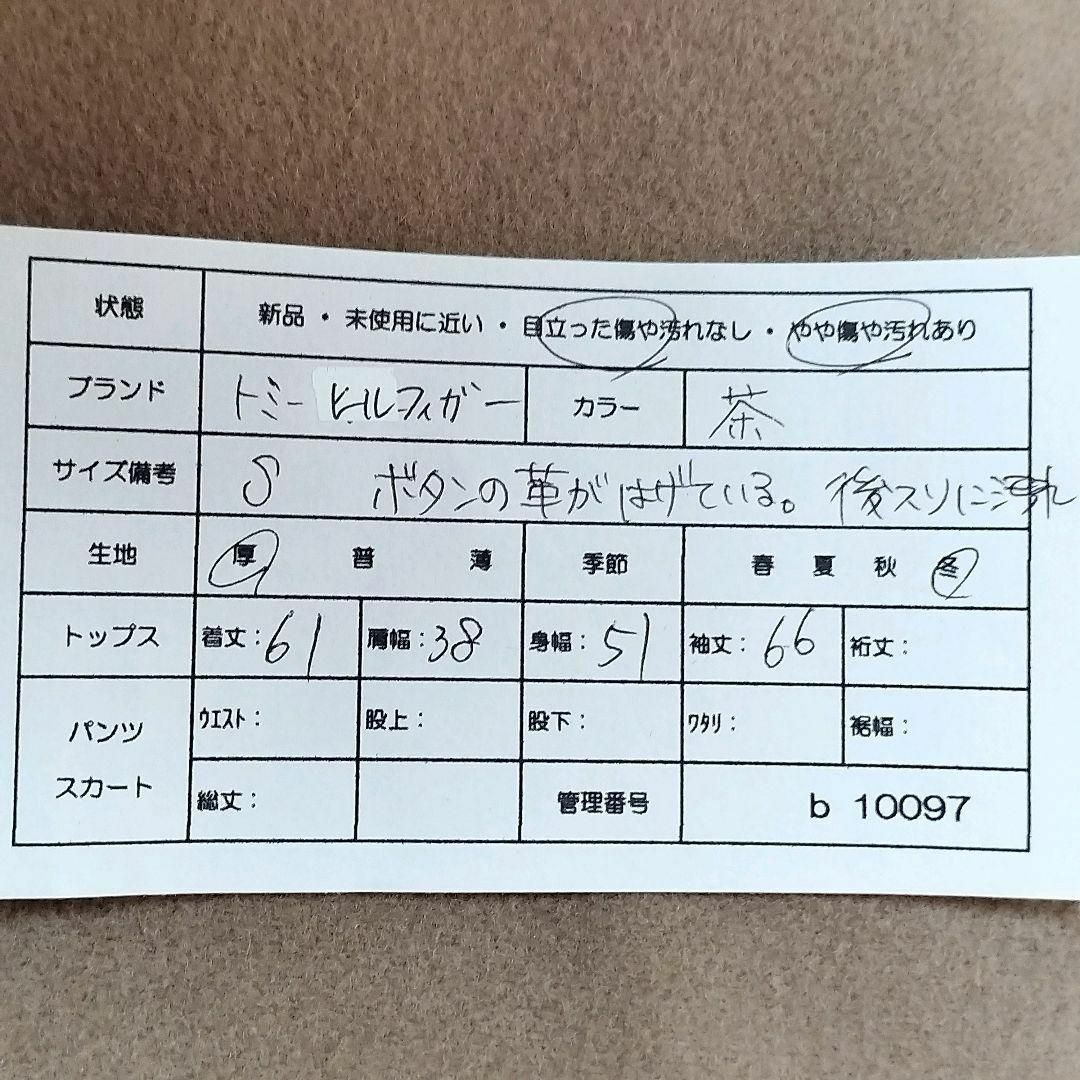 状態 新品・未使用に近い・目立った傷や汚れなし・やや傷や汚れあり
ブランド トミーヒルフィガー カラー 茶
サイズ備考 S ボタンの革がはげている。後スソに汚れ
生地 厚 普 薄 季節 春 夏 秋 冬
トップス 着丈：61 肩幅：38 身幅：51 袖丈：66 裄丈：
パンツ スカート ウエスト： 股上： 股下： ワタリ： 裾幅：
総丈： 管理番号 b 10097